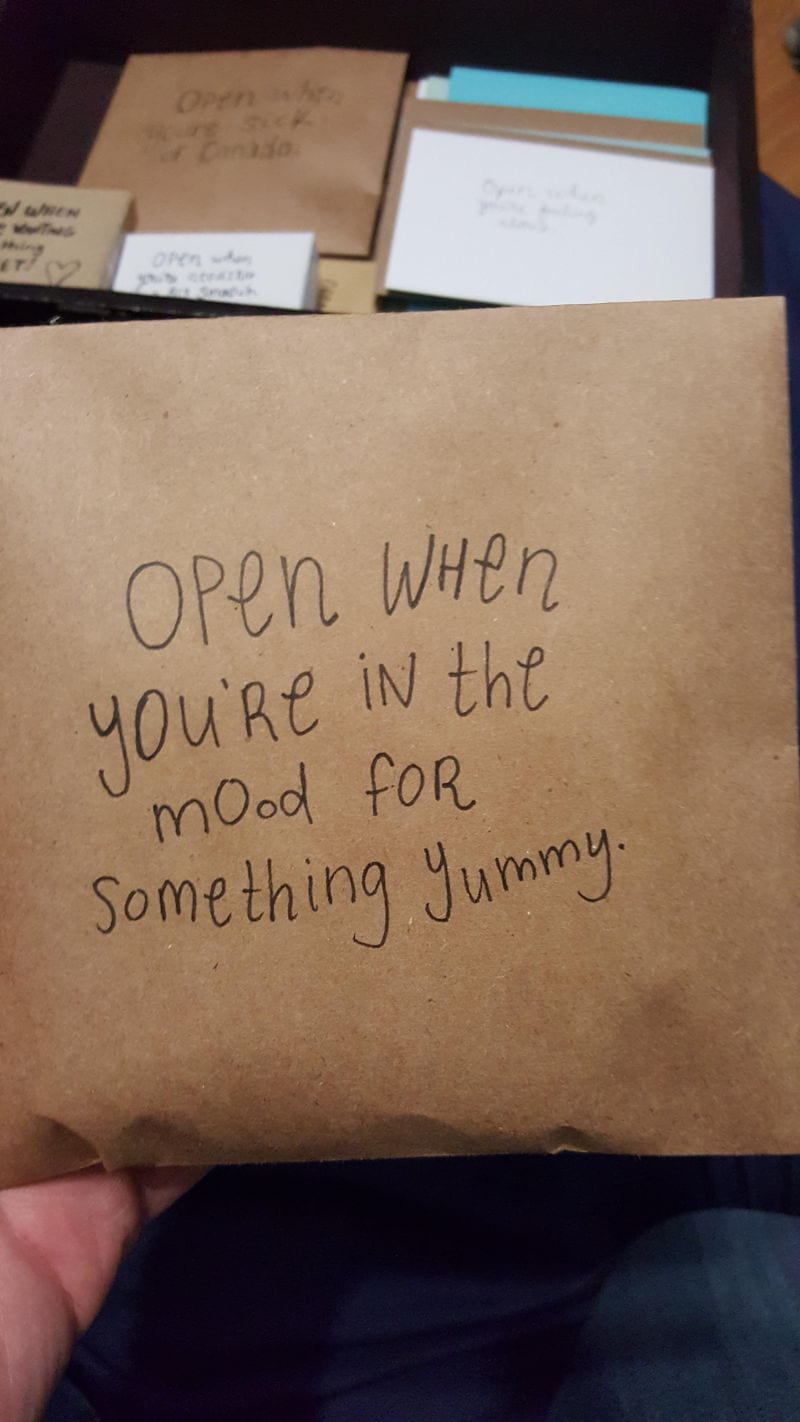 Open when
you're sick
of Canada.
EN WHEN
E WANTING
thing
ET! ♡
Open when
you're needing
a big smooch
Open when
you're feeling
OPen WHen
YOU'Re iN the
mOod fOR
Something yummy.